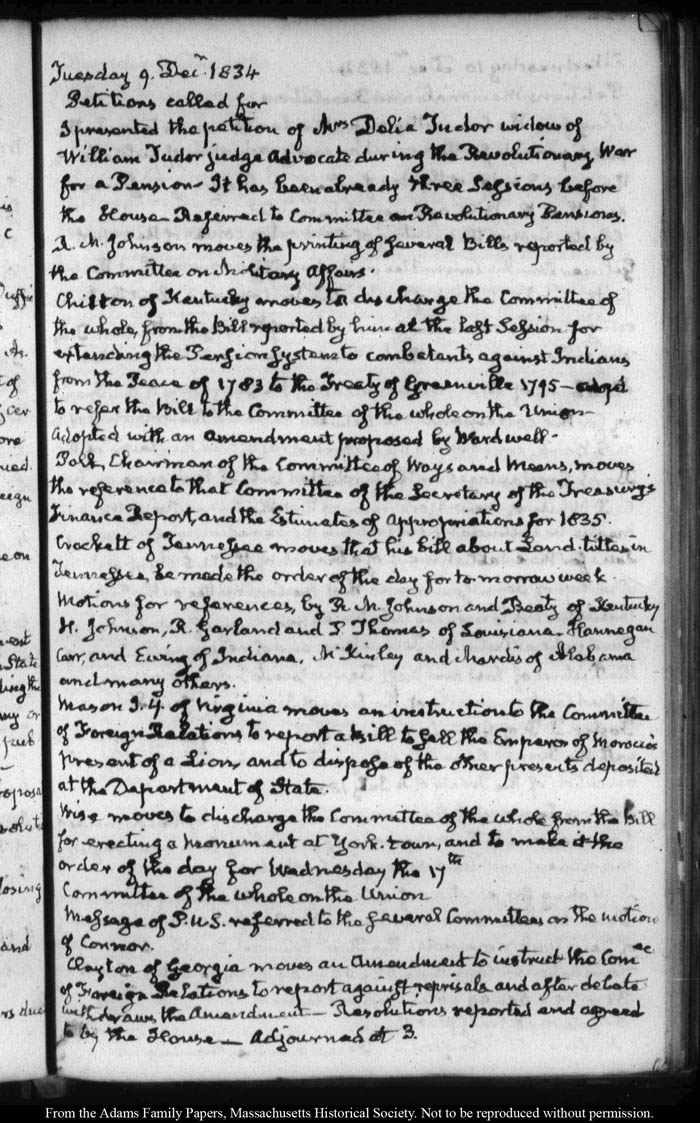 Tuesday 9. Decr. 1834
Petitions called for
I presented the petition of Mrs Delia Tudor widow of
William Tudor judge Advocate during the Revolutionary War
for a Pension – It has been already three Sessions before
the House – Referred to Committee on Revolutionary Pensions.
R. M. Johnson moves the printing of several Bills reported by
the Committee on Military Affairs.
Chilton of Kentucky moves to discharge the Committee of
the whole, from the Bill reported by him at the last Session for
extending the Pension System to combatants against Indians
from the Peace of 1783 to the Treaty of Greenville 1795 –
to refer the Bill to the Committee of the whole on the Union –
Adopted with an amendment proposed by Wardwell –
Polk, Chairman of the Committee of Ways and Means, moves
the reference to that Committee of the Secretary of the Treasury's
Finance Report, and the Estimates of appropriations for 1835.
Crockett of Tennessee moves that his bill about Land-titles in
Tennessee, be made the order of the day for to-morrow week.
Motions for references, by R. M. Johnson and Beaty of Kentucky
H. Johnson, R. Garland and P Thomas of Louisiana – Hannegan
Carr, and Ewing of Indiana, McKinley and Mardis of Alabama
and many others.
Mason J. Y. of Virginia moves an instruction to the Committee
of Foreign Relations to report a bill to sell the Emperor of Morocco's
present of a Lion, and to dispose of the other presents deposited
at the Department of State.
Wise moves to discharge the Committee of the whole from the Bill
for erecting a monument at York-town, and to make it the
order of the day for Wednesday the 17th
Committee of the whole on the Union
Message of P. U. S. referred to the several Committees on the motion
of Connor.
Clayton of Georgia moves an Amendment to instruct the Comee
of Foreign Relations to report against reprisals and after debate
withdraws the Amendment – Resolutions reported and agreed
to by the House – Adjourned at 3.
From the Adams Family Papers, Massachusetts Historical Society. Not to be reproduced without permission.